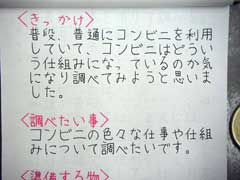 <きっかけ>
普段、普通にコンビニを利用
していて、コンビニはどうい
う仕組みになっているのか気
になり調べてみようと思いま
した。
<調べたい事>
コンビニの色々な仕事や仕組
みについて調べたいです。
<準備する物>